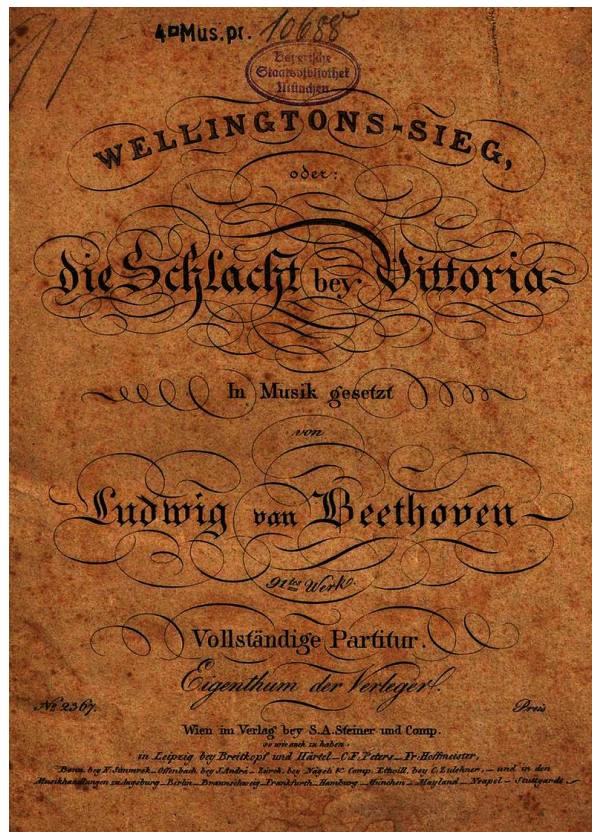 4 Mus.pr. 10688
Bayerische
Staatsbibliothek
München
WELLINGTONS-SIEG,
oder:
die Schlacht bey Vittoria
In Musik gesetzt
von
Ludwig van Beethoven
91tes Werk.
Vollständige Partitur.
Eigenthum der Verleger.
No 2367. Preis
Wien im Verlag bey S.A. Steiner und Comp.
so wie auch zu haben:
in Leipzig bey Breitkopf und Härtel – C.F. Peters – Fr: Hoffmeister,
Bonn bey N. Simmrok – Offenbach bey J. André – Zürch, bey Nägeli & Comp, Eltwill, bey C. Zulehner, – und in den
Musikhandlungen zu Augsburg – Berlin – Braunschweig – Frankfurth – Hamburg – München – Mayland – Neapel – Stuttgardt